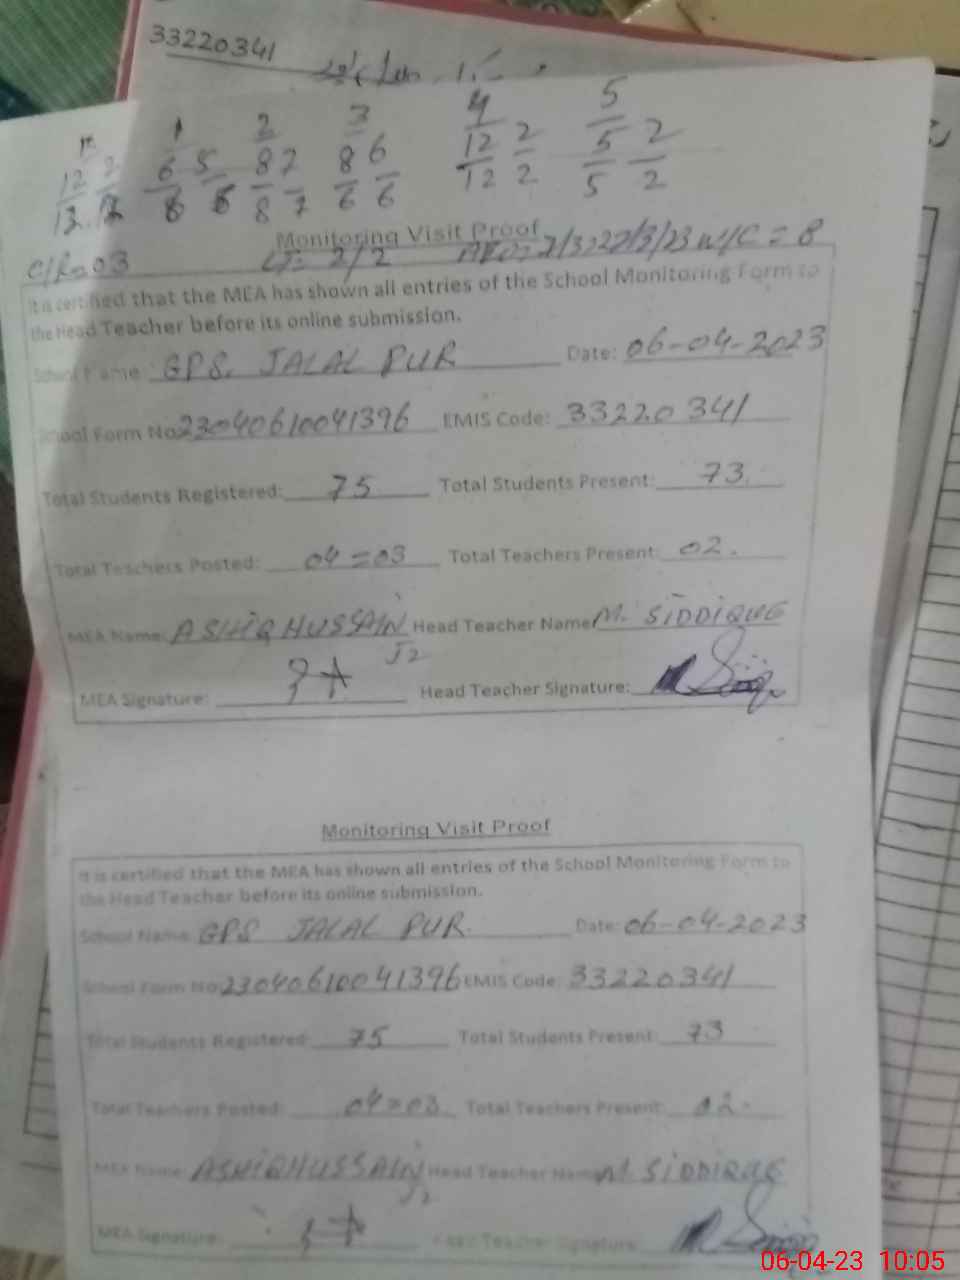 33220341
1 2 3 4 5
12 2 6 5 8 7 8 6 12 2 5 2
12 12 6 6 8 7 6 6 12 2 5 2
Monitoring Visit Proof
C/R=03 2/2 7/3/23 W/C = 8
It is certified that the MEA has shown all entries of the School Monitoring Form to
the Head Teacher before its online submission.
School Name: GPS. JALAL PUR Date: 06-04-2023
School Form No 23040610041396 EMIS Code: 33220341
Total Students Registered: 75 Total Students Present: 73.
Total Teachers Posted: 04=03 Total Teachers Present: 02.
MEA Name: ASHIQ HUSSAIN Head Teacher Name M. SIDDIQUE
J2
MEA Signature: Head Teacher Signature:
Monitoring Visit Proof
It is certified that the MEA has shown all entries of the School Monitoring Form to
the Head Teacher before its online submission.
School Name: GPS JALAL PUR. Date: 06-04-2023
School Form No 23040610041396 EMIS Code: 33220341
Total Students Registered: 75 Total Students Present: 73
Total Teachers Posted: 04=03 Total Teachers Present: 02.
MEA Name: ASHIQ HUSSAIN Head Teacher Name M. SIDDIQUE
J2
MEA Signature: Head Teacher Signature:
06-04-23 10:05